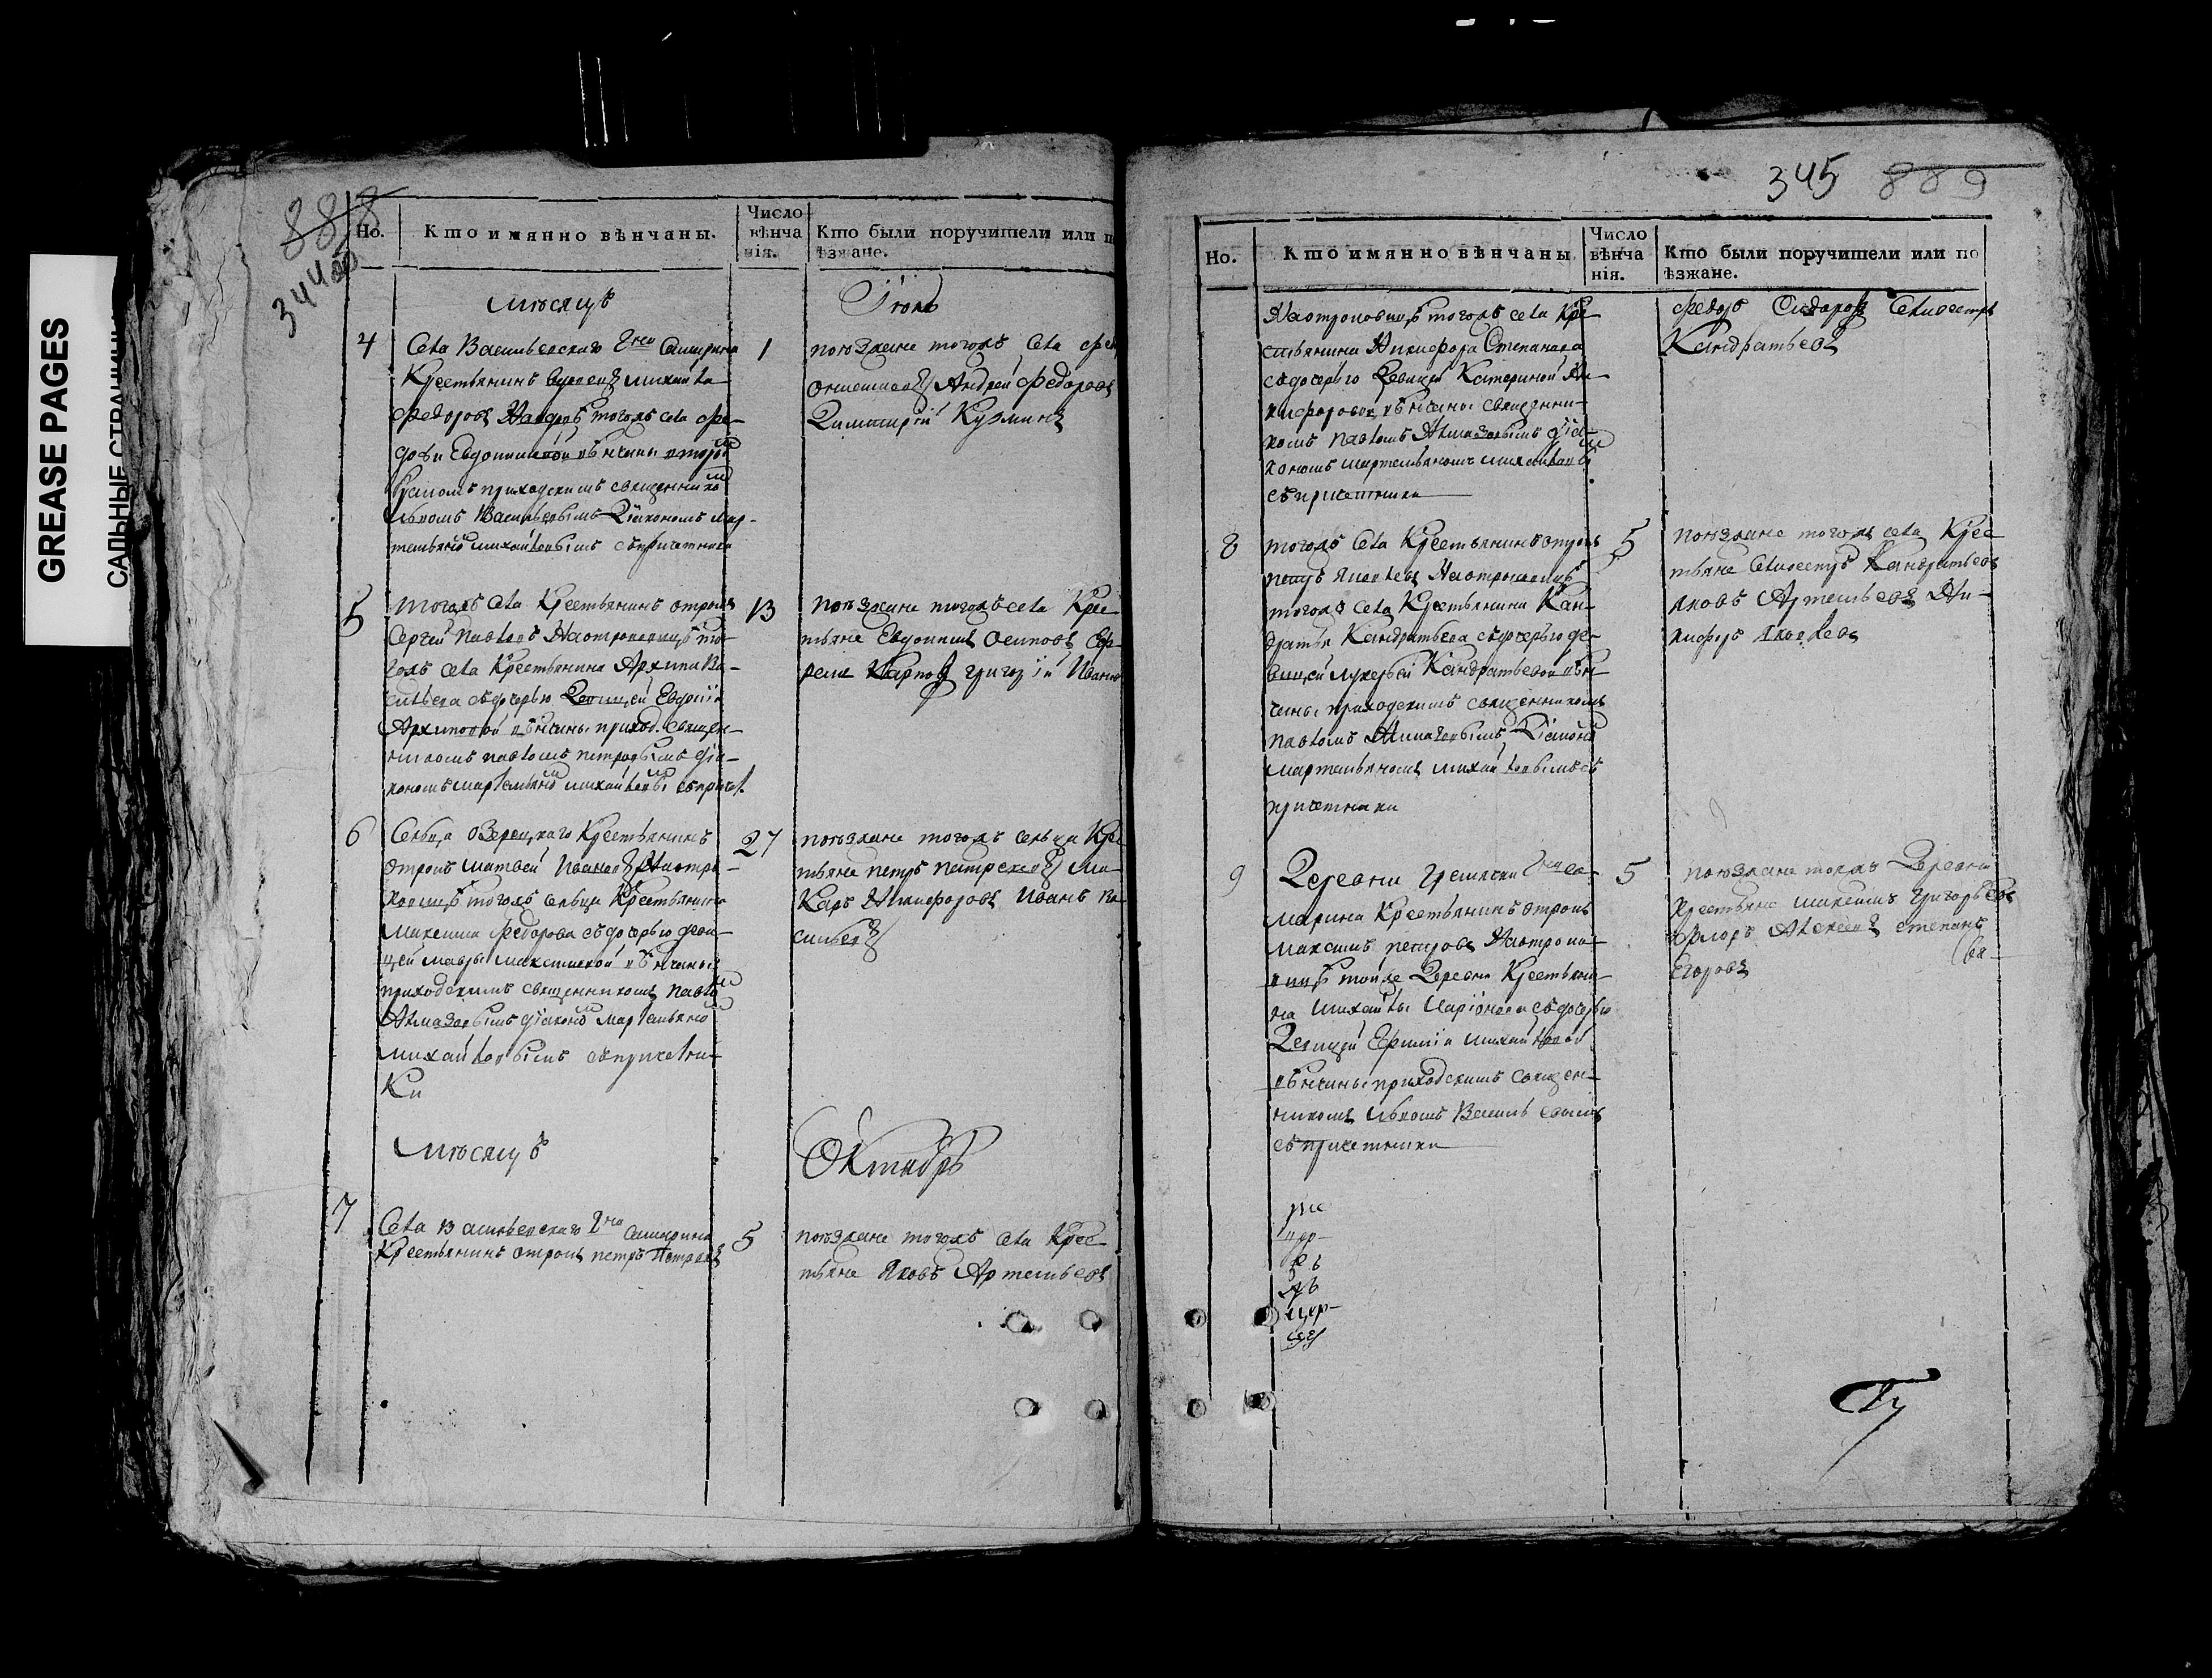 GREASE PAGES
САЛЬНЫЕ СТРАНИЦЫ
888
344об
Но.
Кто имянно вѣнчаны.
Число вѣнчанія.
Кто были поручители или п
ѣзжане.
мѣсяцъ
Іюль
4
Села Васильевскаго Гна Самарина
Крестьянинъ вдовецъ михайла
Федоровъ Навдовѣ тогожъ села Фе-
доры Евдокимовой вѣнчаны вторымъ
бракомъ приходскимъ священникомъ
львомъ Васильевымъ Діакономъ Мар-
темьяномъ михайловымъ съпричетники
1
поѣзжане тогожъ Села
Андрей Федоровъ
Димитрій Кузминъ
5
тогожъ Села Крестьянинъ отрокъ
Сергей Павловъ Наотроковицѣ то-
гожъ Села Крестьянина Архипа Ва-
сильева съдочерью Девицей Евдокіей
Архиповой вѣнчаны приход. священ-
никомъ павломъ петровымъ діа-
кономъ мартемьяномъ михайловымъ съпричет.
13
поѣзжане тогожъ села Крес
тьяне Евдокимъ Осиповъ Еф-
ремъ Карповъ григорій Ивановъ
6
Сельца Озерецкаго Крестьянинъ
Отрокъ матвей Ивановъ Наотро-
ковицѣ тогожъ сельца Крестьянина
Максима Федорова съдочерью деви-
цей маврой максимовой вѣнчаны
приходскимъ священникомъ павломъ
Алмазовымъ діакономъ мартемьяномъ
михайловымъ съпричетни-
Ки
27
поѣзжане тогожъ сельца Крес
тьяне петръ ма-
Каръ Никифоровъ Иванъ Ва
сильевъ
мѣсяцъ
Октябрь
7
Села Васильевскаго Гна Самарина
Крестьянинъ отрокъ петръ Петровъ
5
поѣзжане тогожъ села Крес-
тьяне Яковъ Артемьевъ
345 889
Но.
Кто имянно вѣнчаны.
Число вѣнчанія.
Кто были поручители или по
ѣзжане.
Наотроковицѣ тогожъ села Кре-
стьянина Никифора Степанова
съдочерью Девицей Катериной Ни-
кифоровой вѣнчаны священни-
комъ павломъ Алмазовымъ діа-
кономъ мартемьяномъ михайловымъ
съпричетники
Федоръ Сидоровъ Селиверстъ
Кандратьевъ
8
тогожъ Села Крестьянинъ отрокъ
Яковлевъ Наотроковицѣ
тогожъ села Крестьянина Кан-
дратья Кандратьева съдочерью де-
вицей лукерьей Кандратьевой вѣн-
чаны приходскимъ священникомъ
павломъ Алмазовымъ Діакономъ
мартемьяномъ михайловымъ съ
причетники
5
поѣзжане тогожъ села Крес-
тьяне Селиверстъ Кандратьевъ
Яковъ Артемьевъ Ни-
кифоръ Яковлевъ
9
Деревни Гна Са-
марина Крестьянинъ отрокъ
максимъ петровъ Наотроко-
вицѣ тойже Деревни Крестьяни-
на михайлы Иларіонова съдочерью
Девицей михайловой
вѣнчаны приходскимъ священ-
никомъ львомъ Васильевымъ
съпричетники
5
поѣзжане тояжъ Деревни
Крестьяне максимъ григорьевъ
Флоръ Алексеевъ степанъ
Егоровъ